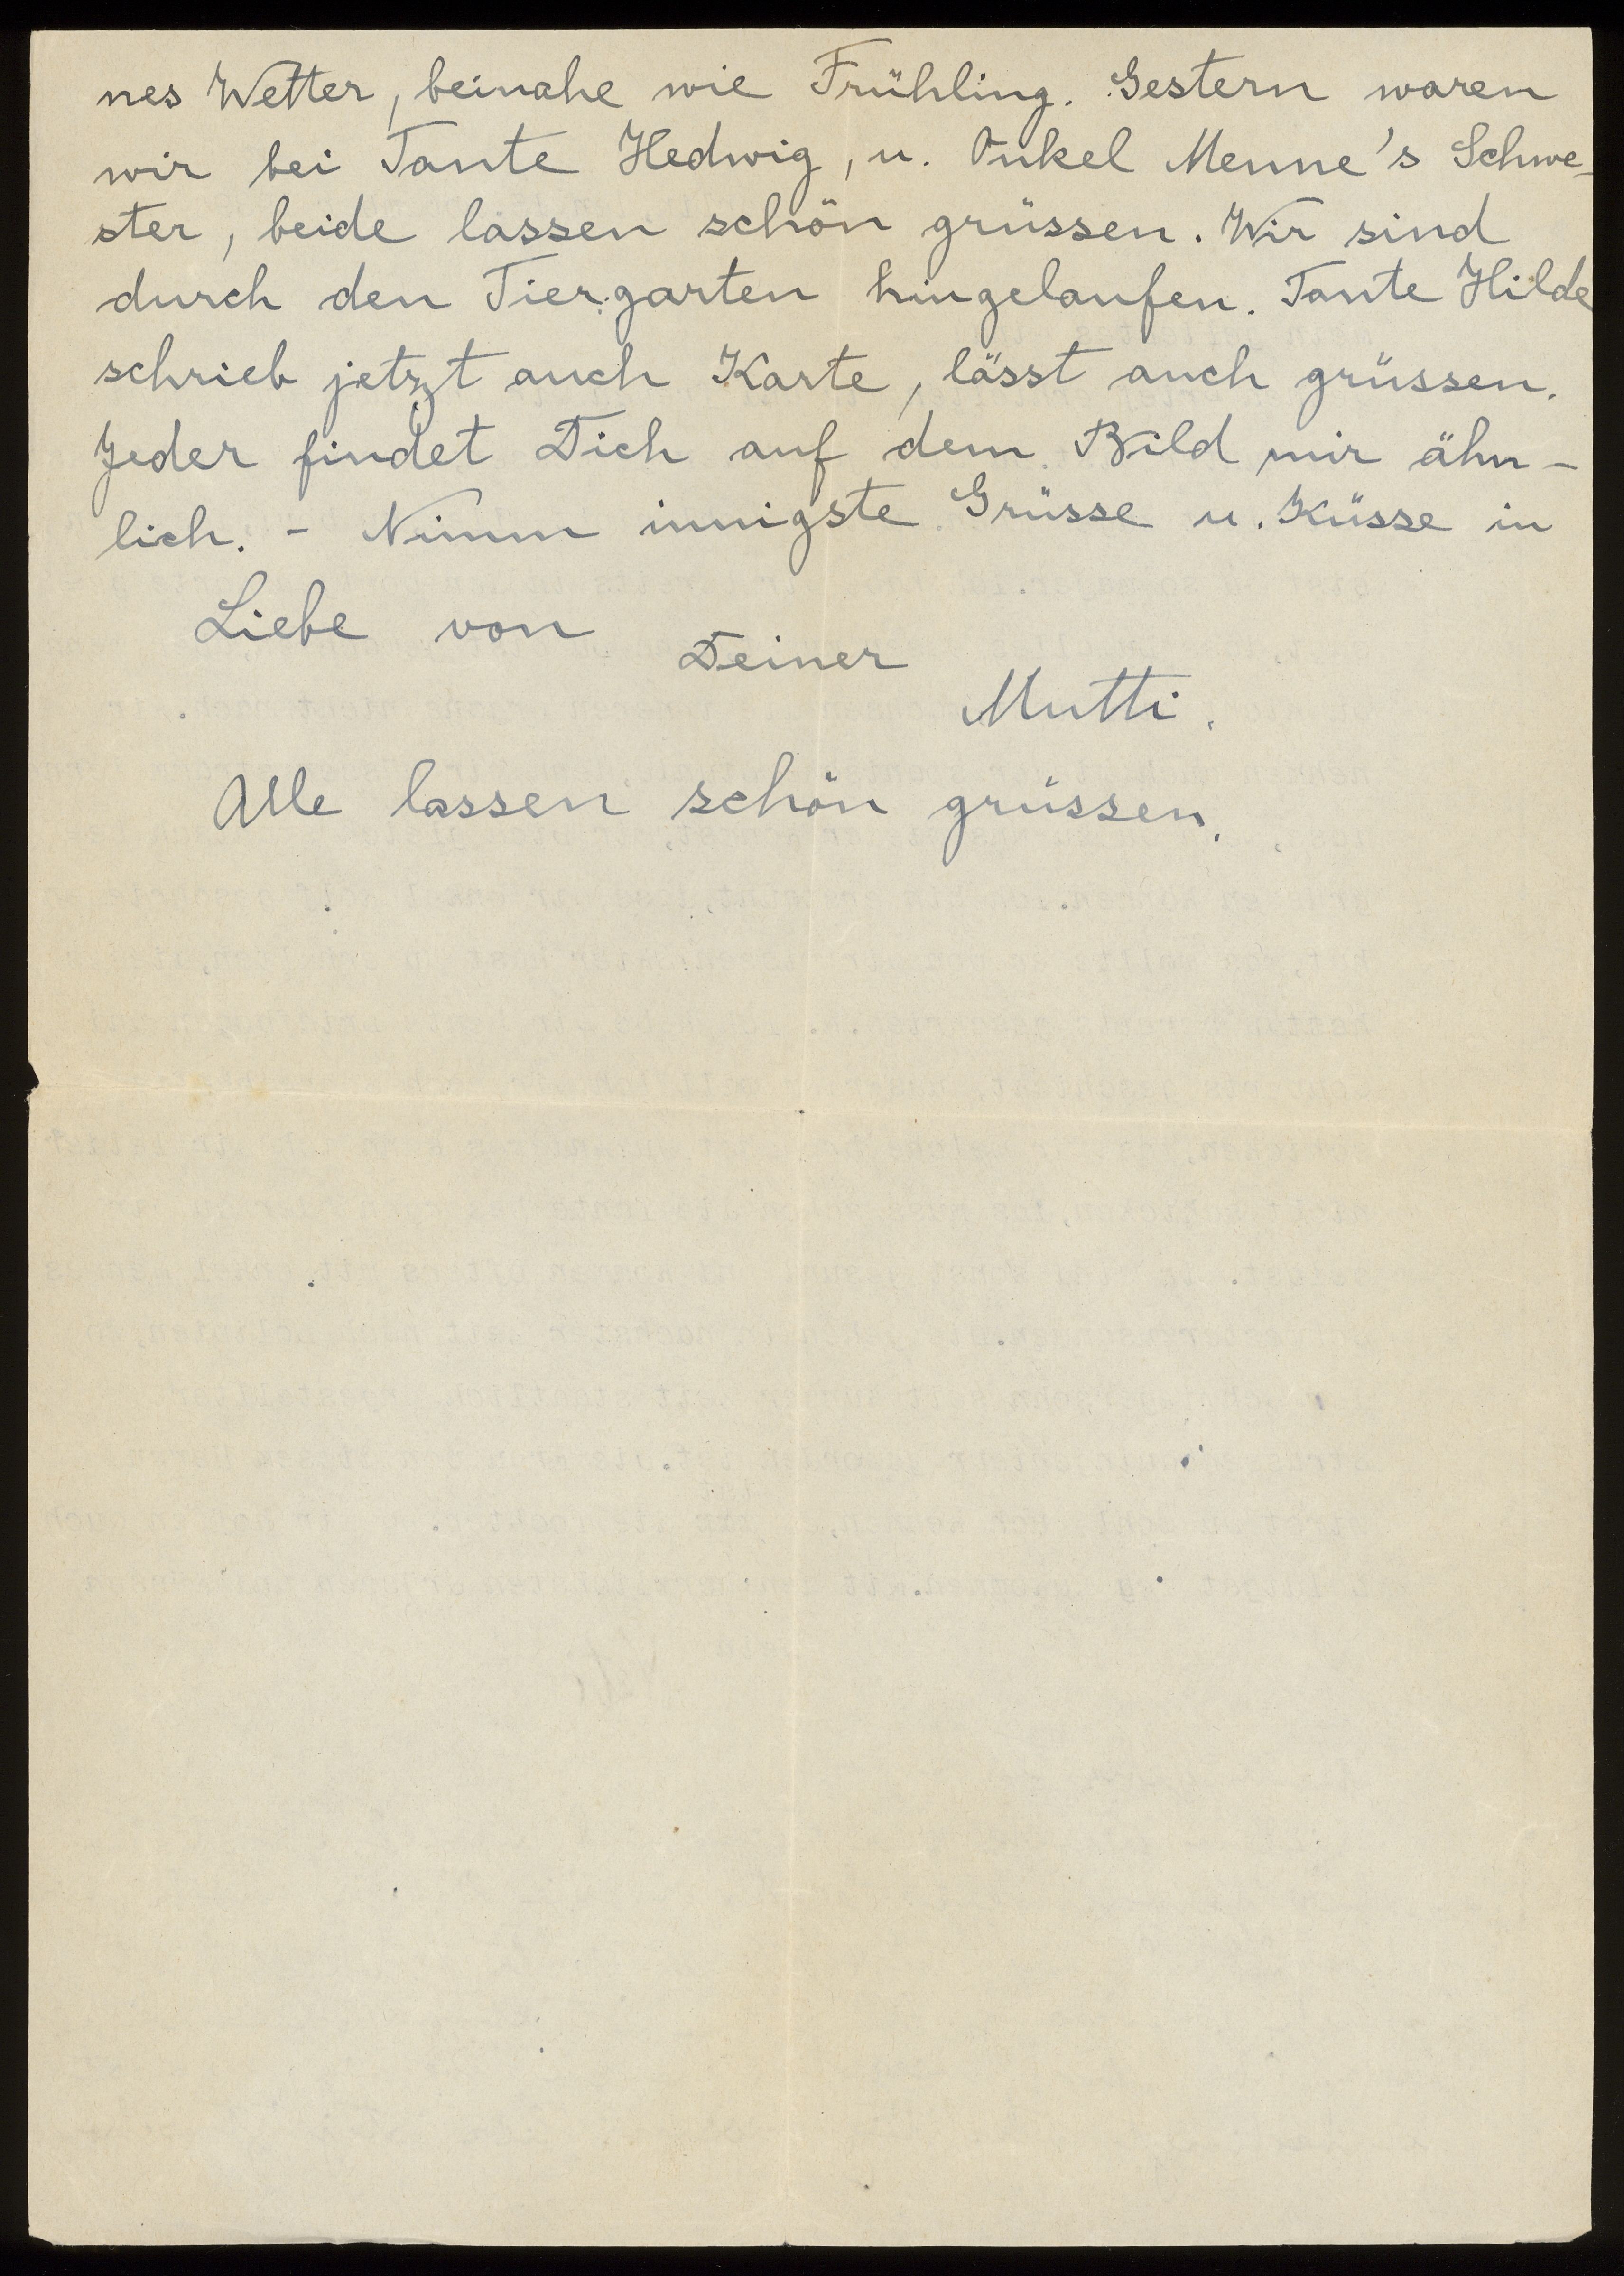 nes Wetter, beinahe wie Frühling. Gestern waren
wir bei Tante Hedwig, u. Onkel Menne's Schwe-
ster, beide lassen schön grüssen. Wir sind
durch den Tiergarten hingelaufen. Tante Hilde
schrieb jetzt auch Karte, lässt auch grüssen.
Jeder findet Dich auf dem Bild mir ähn-
lich. - Nimm innigste Grüsse u. Küsse in
Liebe von
Deiner
Mutti.
Alle lassen schön grüssen.